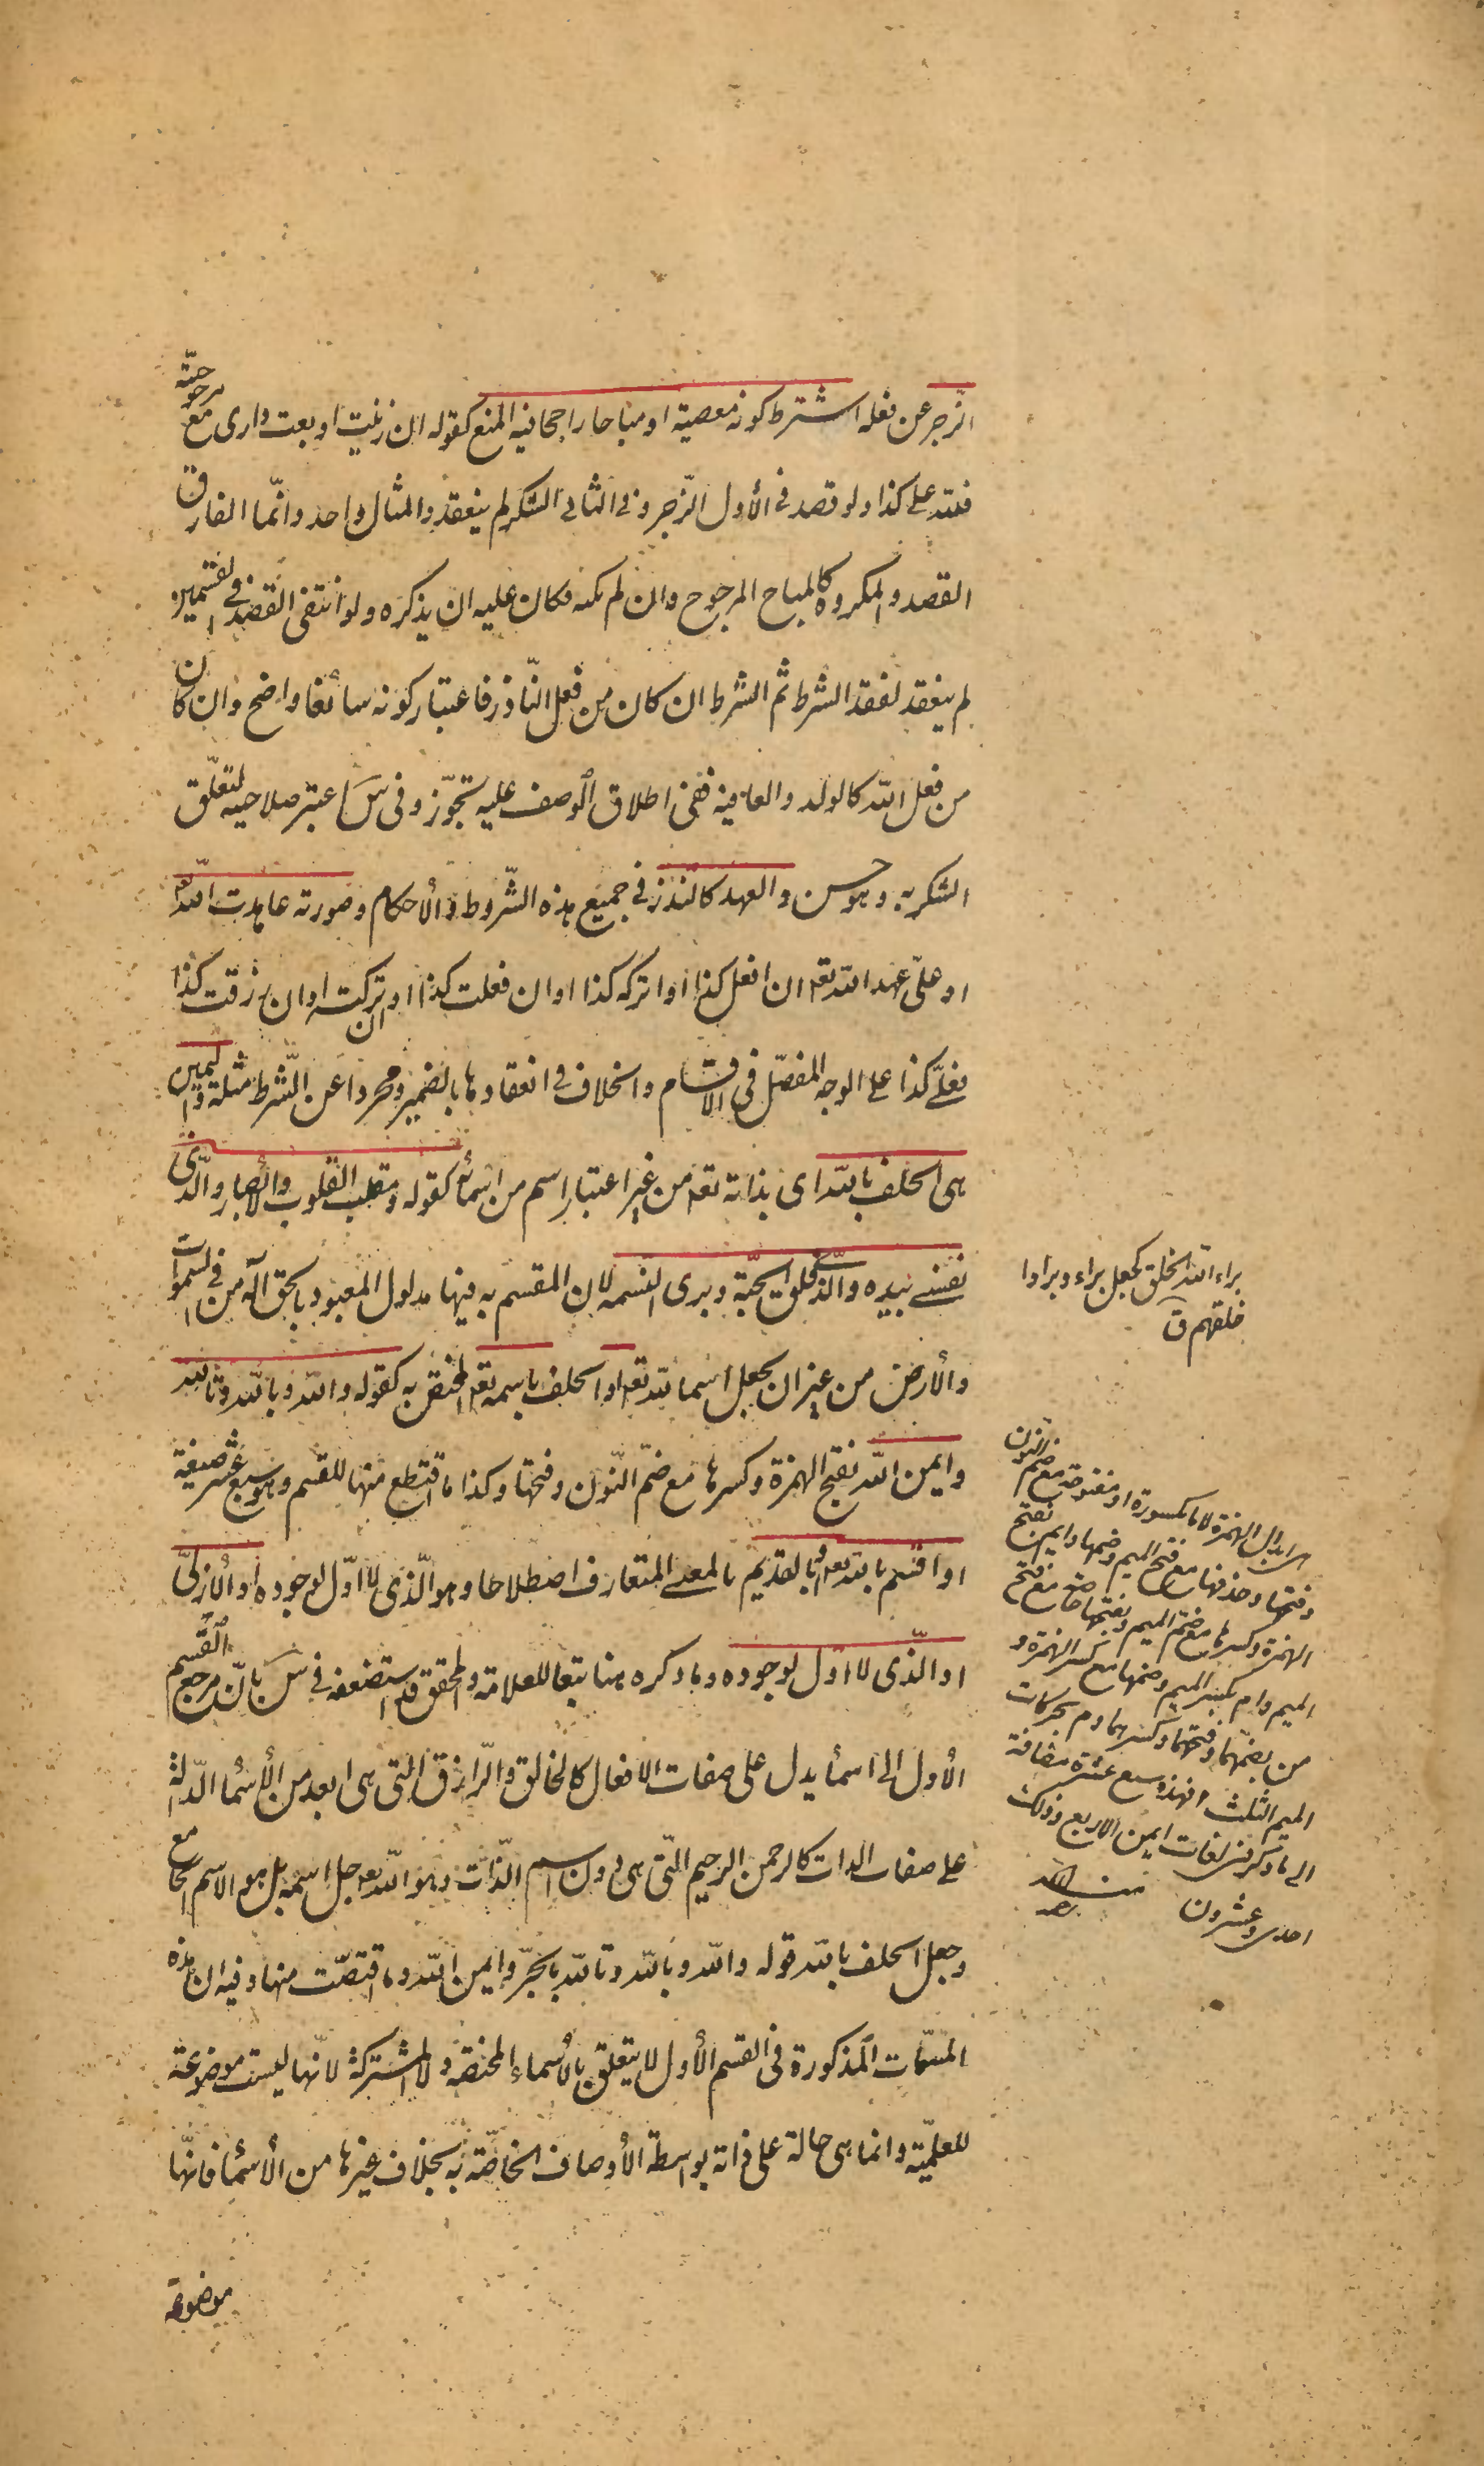 الزجر عن فعله اشترط كونه معصية او مباحا راجحا فيه المنع كقوله ان زنيت او بعت داري مع مرجوحيته
فلله علي كذا ولو قصد في الأول الزجر وفي الثاني الشكر لم ينعقد والمثال واحد وانّما الفارق
القصد والمكروه كالمباح المرجوح وان لم يكنه فكان عليه ان يذكره ولو انتفى القصد في القسمين
لم ينعقد لفقد الشرط ثم الشرط ان كان من فعل النّاذر فاعتبار كونه سائغا واضح وان كان
من فعل الله كالولد والعافية ففي اطلاق الوصف عليه تجوّز وفي س اعتبر صلاحيته لتعلّق
الشكر به وهو حسن والعهد كالنذر في جميع هذه الشّروط والأحكام وصورته عاهدت الله
او علىّ عهد الله تعه ان افعل كذا او اتركه كذا او ان فعلت كذا او تركته او ان رزقت كذا
فعليّ كذا على الوجه المفصّل في الأقسام والخلاف في انعقادهما بالضمير ومجردا عن الشّرط مثله واليمين
هي الحلف بالله اى بذاته تعه من غير اعتبار اسم من اسمائه كقوله ومقلب القلوب والأبصار والّذي
نفسي بيده والّذي فلق الحبّة وبرى النسمه لان المقسم به فيها مدلول المعبود بالحق اله من في السموات
والأرض من غير ان يجعل اسما لله تعه او الحلف باسمه تعه المختص به كقوله والله وبالله وتالله
وايمن الله بفتح الهمزة وكسرها مع ضمّ النّون وفتحها وكذا ما اقتطع منها للقسم وهو سبع عشر صيغة
او اقسم بالله او بالقديم بالمعنى المتعارف اصطلاحا وهو الّذى لا اوّل لوجوده او الأزليّ
او الّذي لا اوّل لوجوده وما ذكره هنا تبعا للعلامة والمحقق قد استضعفه في س بانّ مرجع القسم
الأول الى اسما يدل على صفات الافعال كالخالق والرّازق التي هي ابعد من الأسما الدّالة
على صفات الذات كالرحمن الرحيم التي هي دون اسم الذّات وهو الله جل اسمه بل هو الاسم الجامع
وجعل الحلف بالله قوله والله وبالله وتالله بالجرّ وايمن الله وما اقتضت منها وفيه ان هذه
السّمات المذكورة في القسم الأول لا يتعلق بالأسماء المختصه ولا المشتركة لانّها ليست موضوعة
للعلميّة وانما هي حالة على ذاته بواسطة الأوصاف الخاصّة به بخلاف غيرها من الأسما فانّها
موضوعة
براء الله الخلق كجعل براء وبراوا
خلقهم ق
ابدال الهمزة هاء مكسورة او مفتوحة مع ضم النون
وفتحها وحذفها مع فتح الميم وضمها وايم بفتح
الهمزة وكسرها مع ضم الميم وبفتحها خاصة مع فتح
الميم وام بكسر الميم وضمها مع كسر الهمزة و
من بضمهما وفتحهما وكسرهما وم بحركات
الميم الثلث فهذه سبع عشرة مضافة
الى ما ذكر من لغات ايمن الاربع وذلك
احدى وعشرون